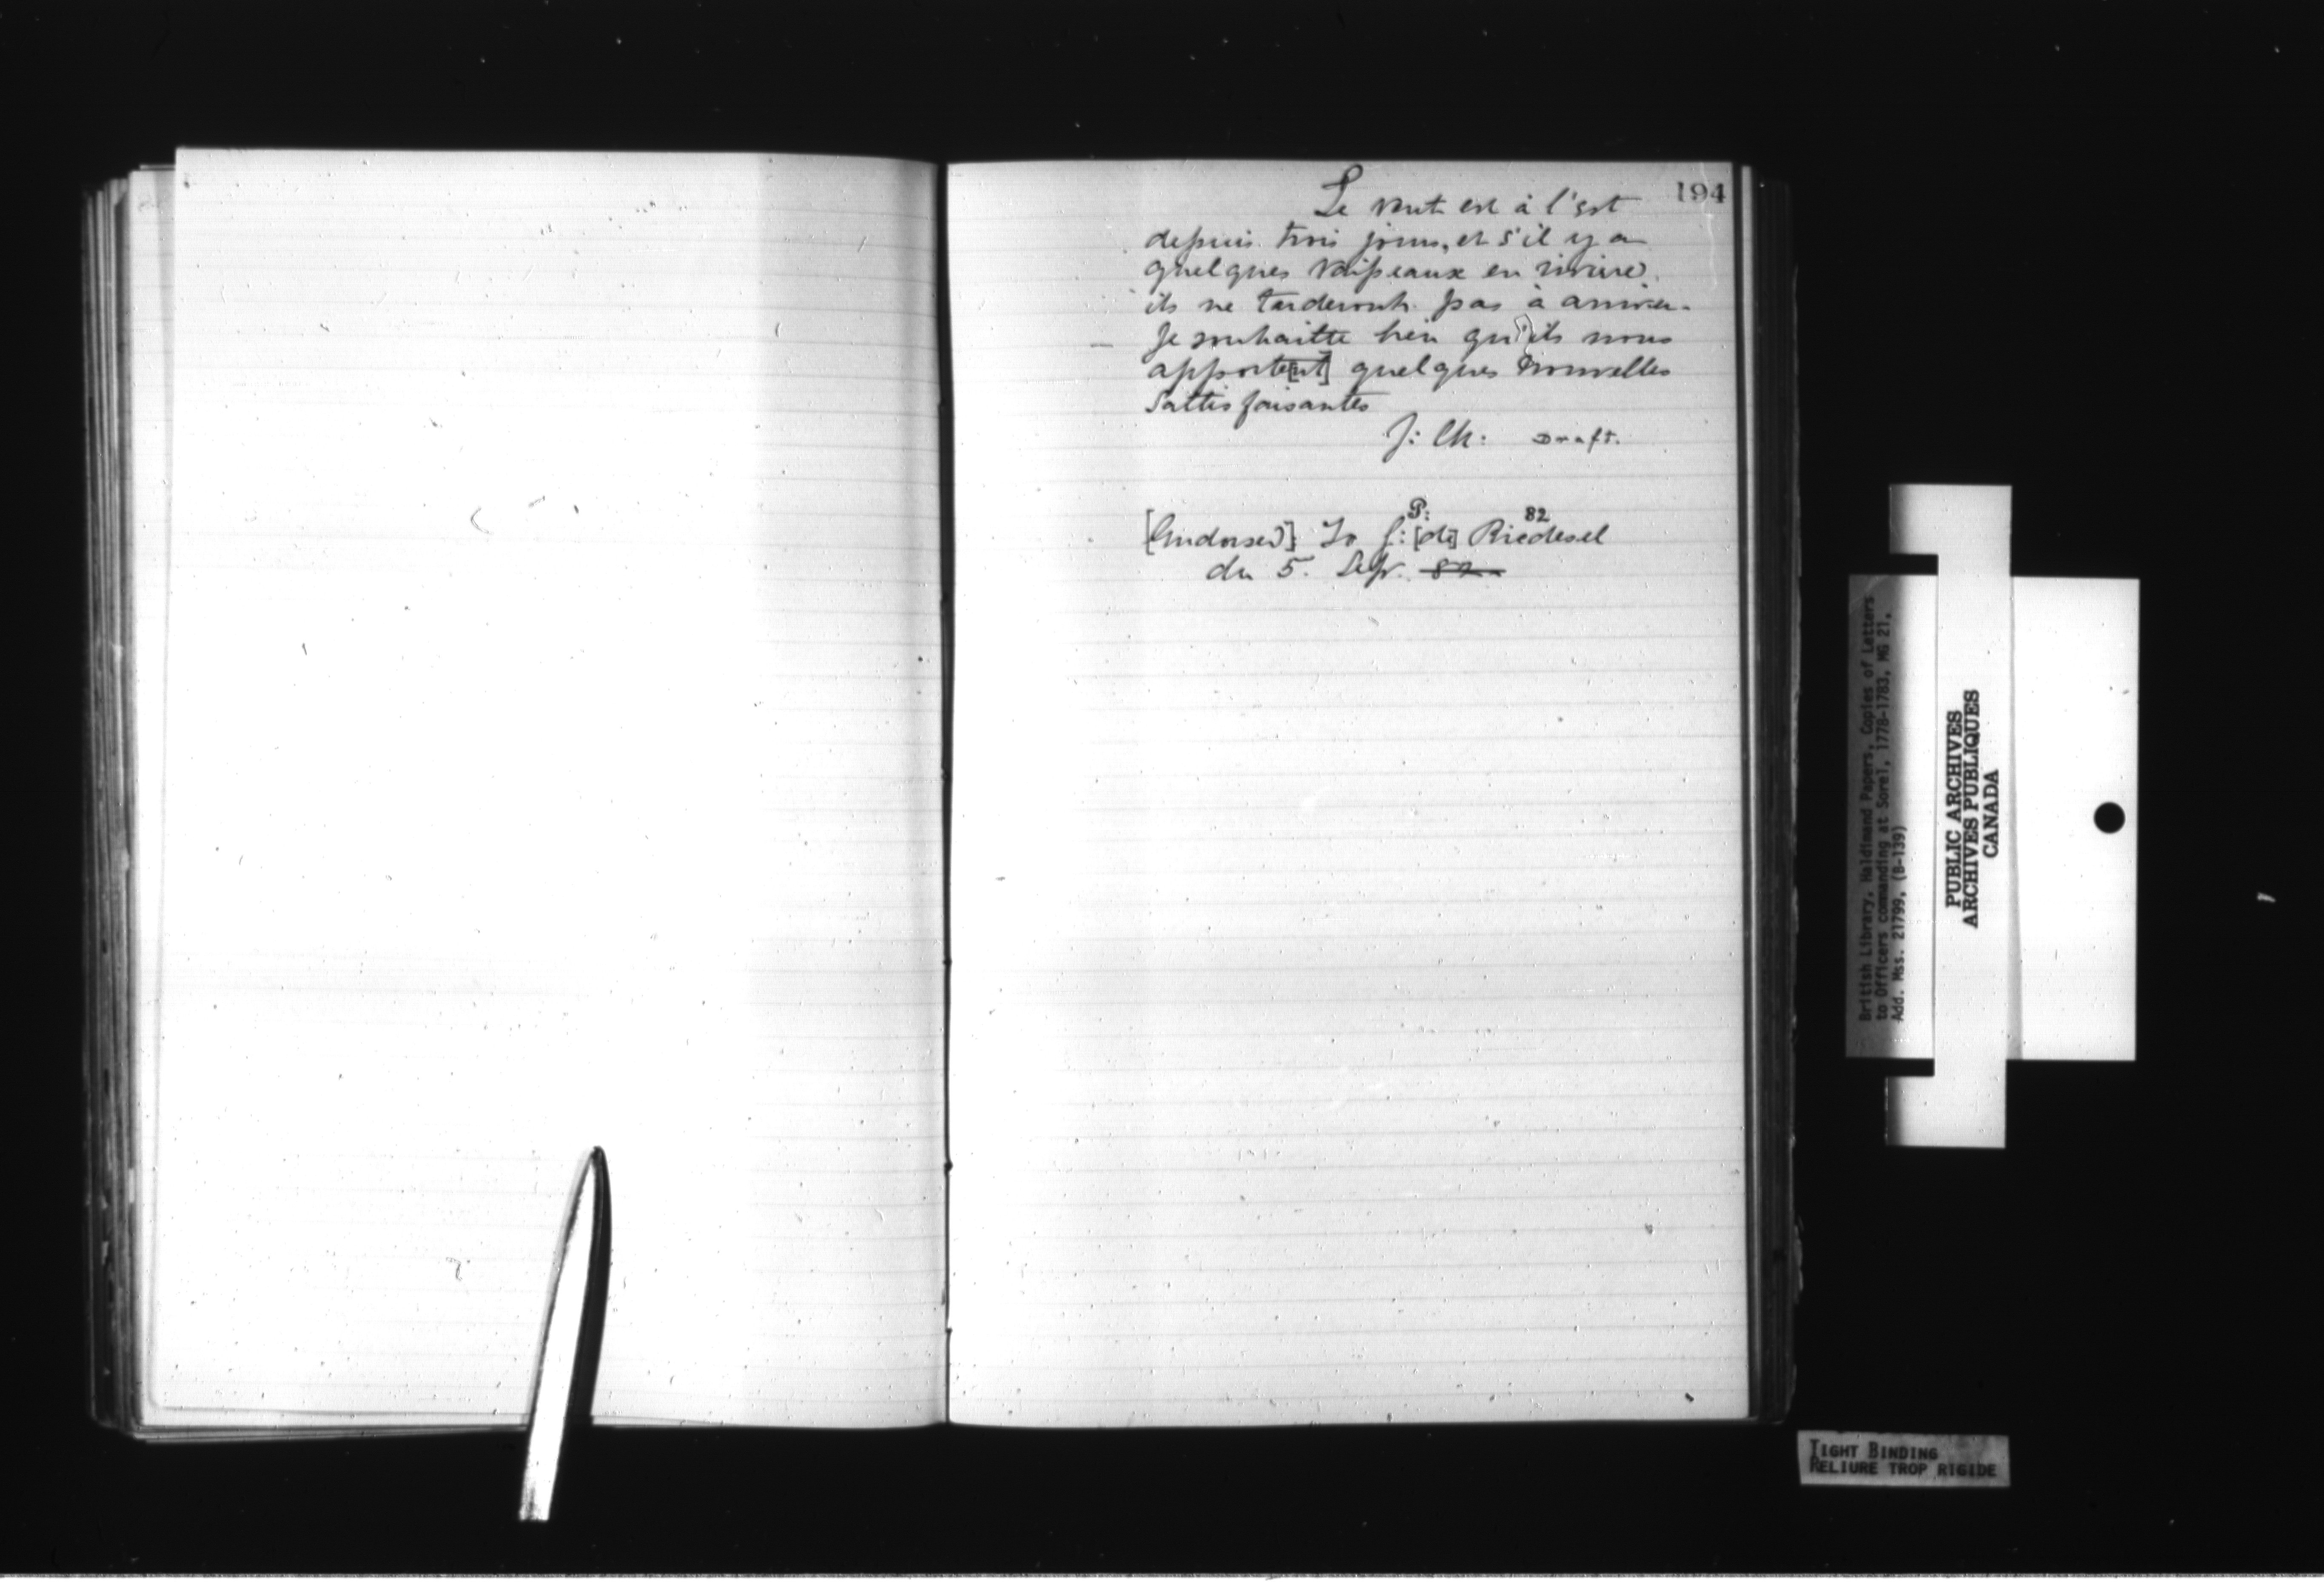 194
Le vent est à l'est
depuis trois jours, et s'il y a
quelques vaisseaux en riviere
ils ne tarderont pas à arriver.
Je souhaitte bien qu'ils nous
apporte[nt] quelques nouvelles
sattisfaisantes
Draft.
P: 82
[Endorsed]: To G: [de] Riedesel
du 5. Sepr. 82
British Library, Haldimand Papers, Copies of Letters
to Officers commanding at Sorel, 1778-1783, MG 21,
Add. Mss. 21799, (B-139)
PUBLIC ARCHIVES
ARCHIVES PUBLIQUES
CANADA
TIGHT BINDING
RELIURE TROP RIGIDE